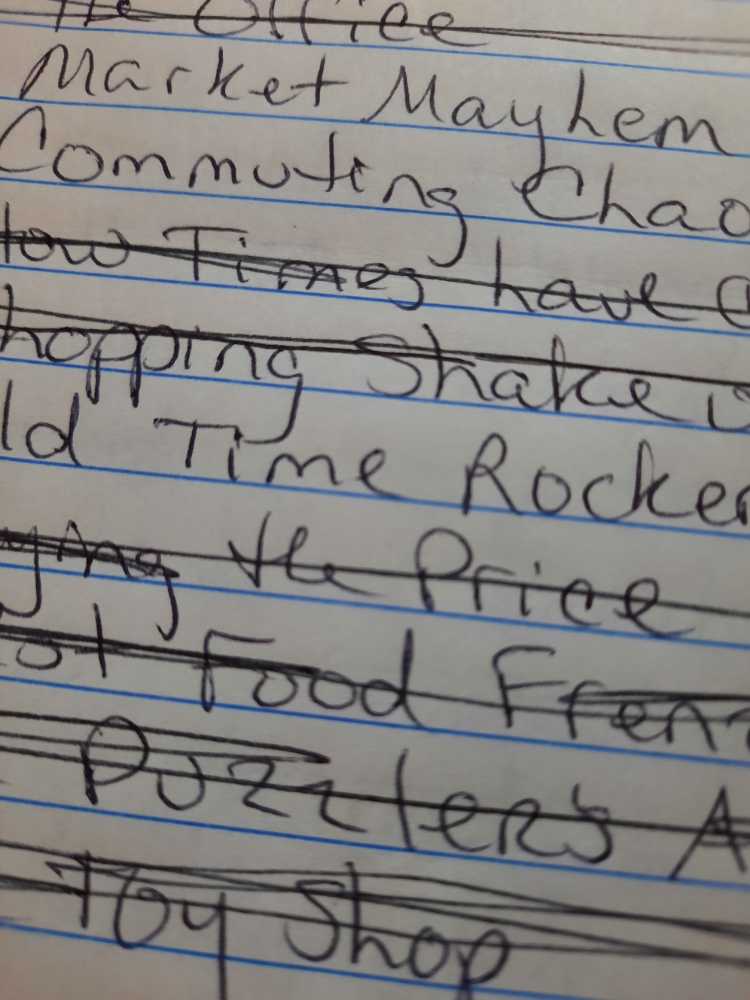 The Office
Market Mayhem
Commuting Chao
How Times have C
hopping Shake u
ld Time Rocker
ying the Price
ot Food Frenz
Puzzler's A
Toy Shop